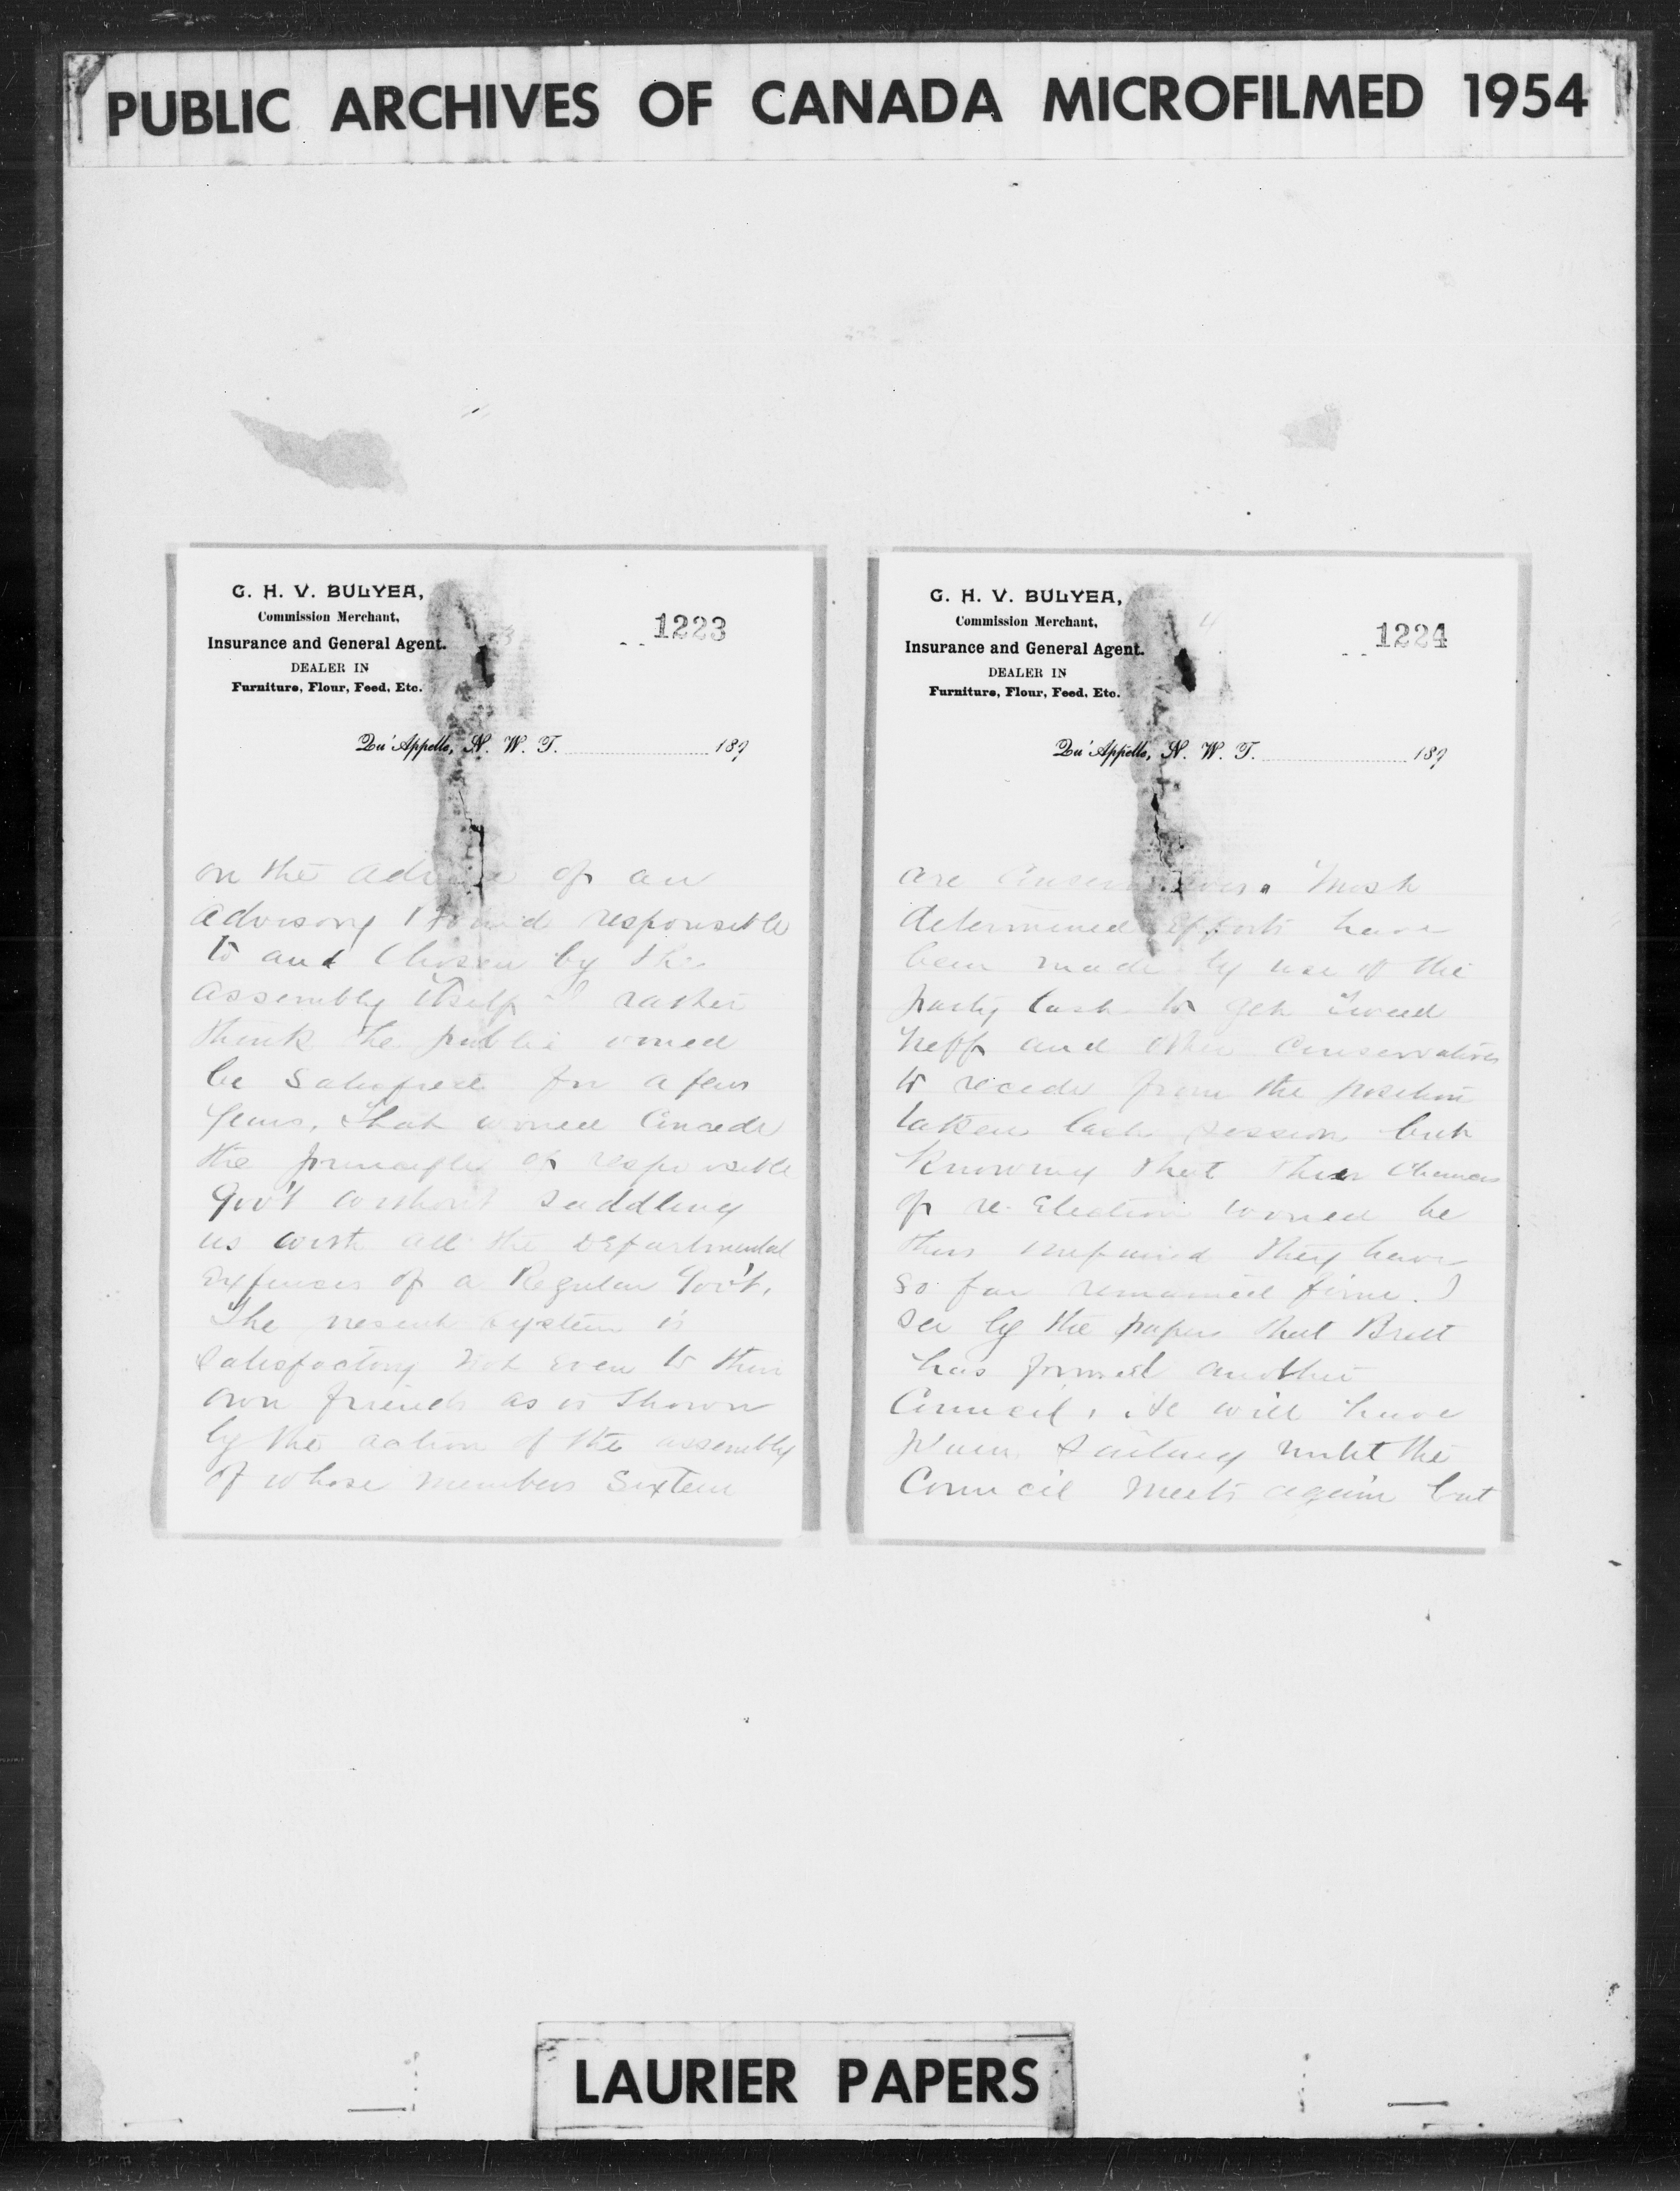 PUBLIC ARCHIVES OF CANADA MICROFILMED 1954
G. H. V. BULYEA,
Commission Merchant,
Insurance and General Agent.
DEALER IN
Furniture, Flour, Feed, Etc.
3
1223
Qu'Appelle, N. W. T. 189
on the advice of an
advisory Board responsible
to and chosen by the
assembly itself I rather
think the public would
be satisfied for a few
years, that would concede
the principle of responsible
Gov't without saddling
us with all the Departmental
expenses of a Regular Gov't.
The present system is
satisfactory not even to their
own friends as is shown
by the action of the assembly
of whose members sixteen
G. H. V. BULYEA,
Commission Merchant,
Insurance and General Agent.
DEALER IN
Furniture, Flour, Feed, Etc.
4
1224
Qu'Appelle, N. W. T. 189
are Conservatives. Most
determined efforts have
been made by use of the
party lash to get
Neff and other Conservatives
to recede from the position
taken last session but
Knowing that their chances
of re-election would be
thus impaired they have
so far remained firm. I
see by the papers that Brett
has formed another
Council, he will have
plain sailing until the
Council meets again but
LAURIER PAPERS